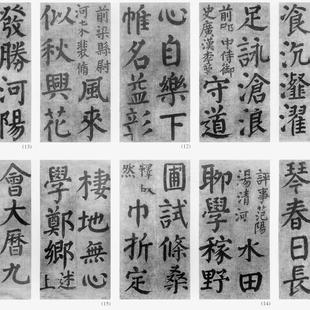 飡沆瀣濯
足詠滄浪
前殿中侍御
史廣漢李萼
守道
心自樂下
帷名益彰
前梁縣尉
河東裴脩
風來
似秋興花
發勝河陽
(12)
(13)
琴春日長
評事范陽
湯清河
水田
聊學稼野
圃試條桑
釋皎
然
巾折定
棲地無心
學鄭鄉
述
上
會大曆九
(14)
(15)